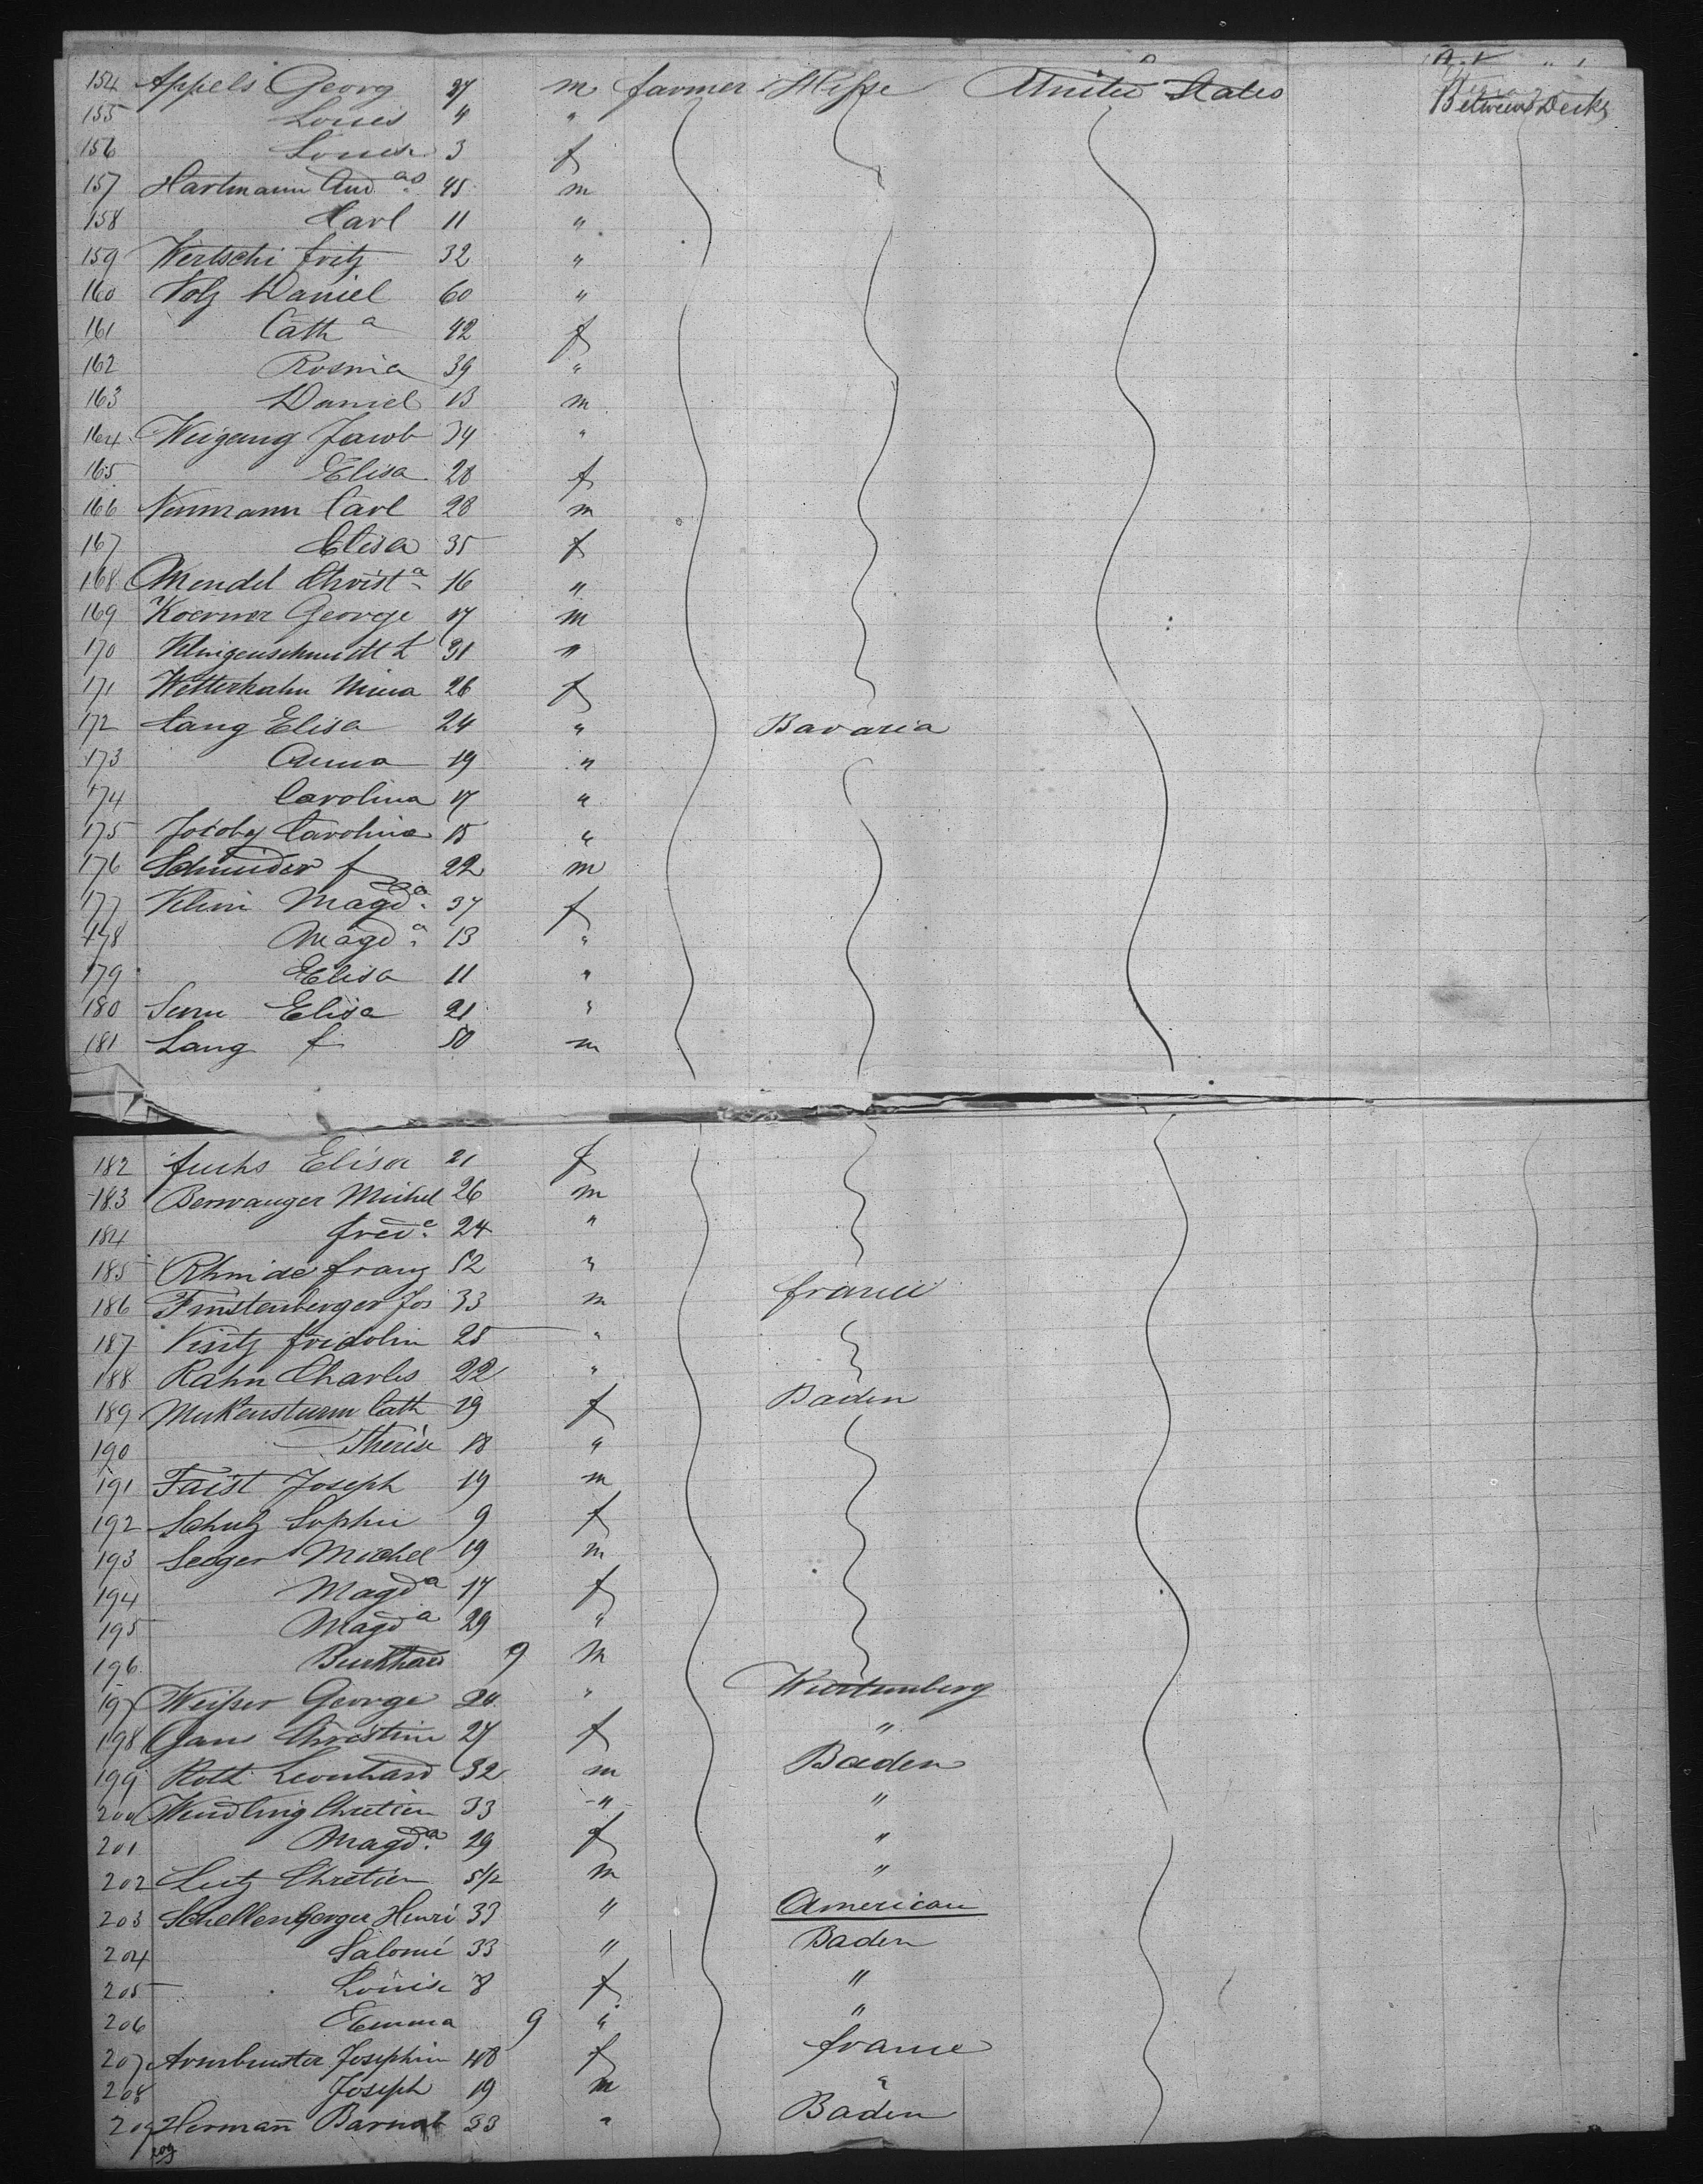 154 Appels Georg 27 m farmer Hesse United States Between Decks
155 Louis 4 "
156 Louise 3 f
157 Hartmann And as 45 m
158 Carl 11 "
159 Wertschi fritz 32 "
160 Volz Daniel 60 "
161 Cath a 42 f
162 Rosina 39 "
163 Daniel 13 m
164 Weigang Jacob 34 "
165 Elisa 28 f
166 Neumann Carl 28 m
167 Elisa 35 f
168 Mendel Christ a 16 "
169 Koerner George 17 m
170 Klingenschmidt L 31 "
171 Wetterhahn Mina 26 f
172 Lang Elisa 24 " Bavaria
173 Anna 19 "
174 Carolina 17 "
175 Jacoby Carolina 15 "
176 Schneider f 22 m
177 Klein Magd a 37 f
178 Magd a 13 "
179 Elisa 11 "
180 Elisa 21 "
181 Lang f 50 m
182 fuchs Elisa 21 f
183 Berwanger Michel 26 m
184 fred c 24 "
185 franz 52 "
186 Furstenberger Jos 33 m france
187 fridolin 25 "
188 Rahn Charles 22 "
189 Mukensturm Cath 29 f Baden
190 Therise 18 "
191 Faist Joseph 19 m
192 Schutz Sophie 9 f
193 Seeger Michel 19 m
194 Magd a 17 f
195 Magd a 29 "
196 Burkhard 9 m
197 Weisser George 20 " Wurtemberg
198 Jans Christine 27 f "
199 Roth Leonhard 32 m Baden
200 Wendling Chretien 33 " "
201 Magd a 29 f "
202 Lutz Chretien 5 1/2 m "
203 Schellenberger Henri 33 " American
204 Salomé 33 " Baden
205 Louise 8 f "
206 Emma 9 " "
207 Armbruster Josephine 48 f france
208 Joseph 19 m "
209 Hermañ Barnab 33 " Baden
209